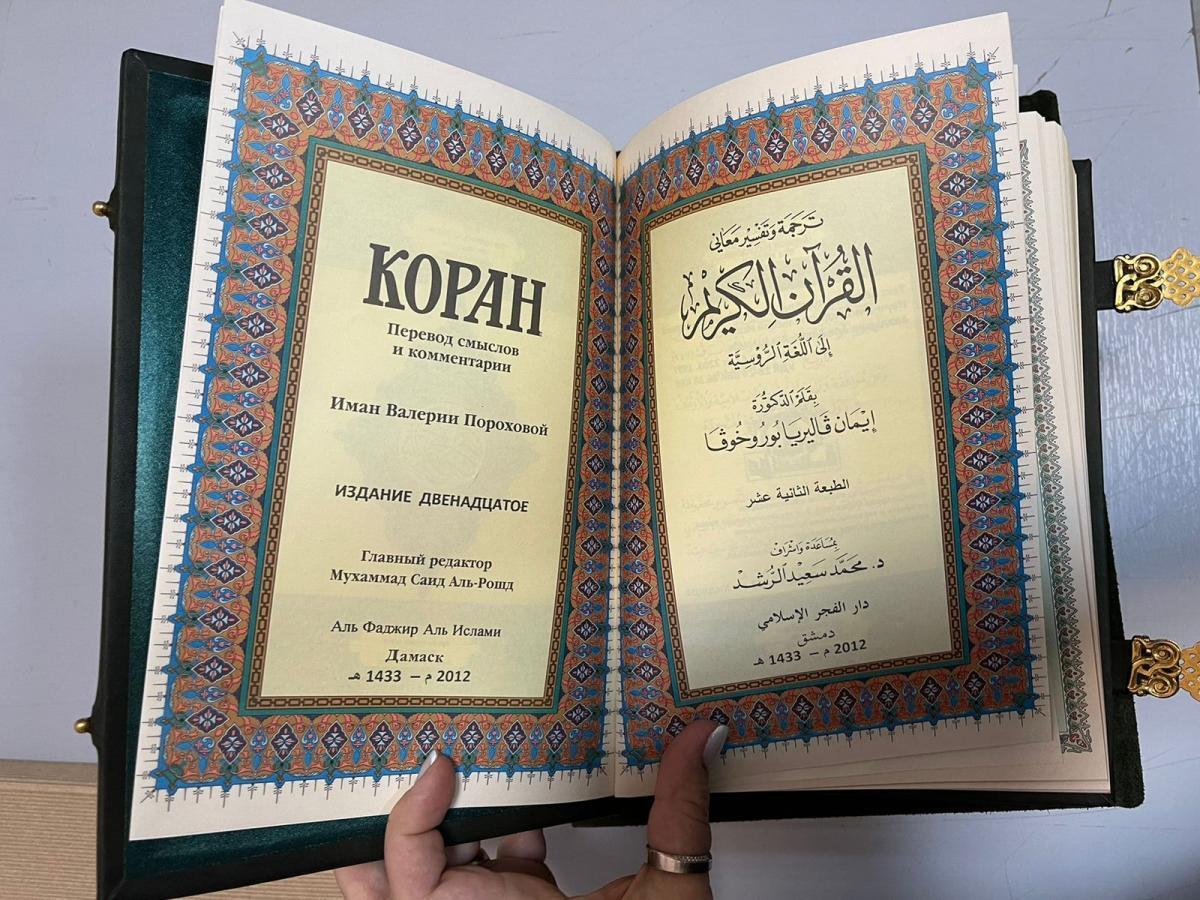 КОРАН
Перевод смыслов
и комментарии
Иман Валерии Пороховой
ИЗДАНИЕ ДВЕНАДЦАТОЕ
Главный редактор
Мухаммад Саид Аль-Рошд
Аль Фаджир Аль Ислами
Дамаск
2012 م – 1433 هـ
تَرجَمَة وَتَفْسِيْر مَعَاني
القُرْآنِ الكَرِيْمِ
إِلَى اللُّغَةِ الرُّوْسِيَّة
بِقَلَمِ الدَّكتُورَة
إِيْمَان ڤَاليْريَا بُورُوخُوڤَا
الطبعة الثانية عشر
بمُسَاعَدَة وَاشْرَاف
د. محمَّد سَعِيْد الرُّشْد
دار الفجر الإسلامي
دمشق
2012 م – 1433 هـ